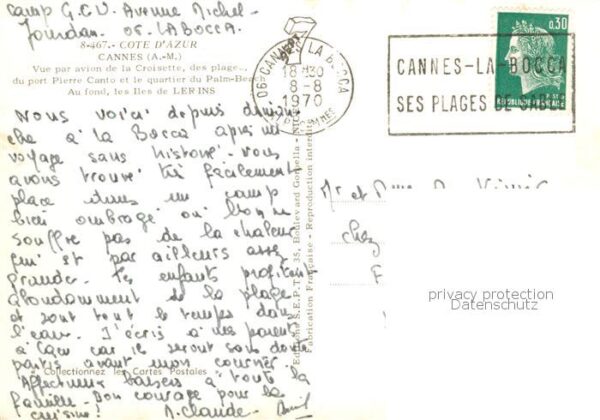 Camp G.C.U. Avenue Michel-
Jourdan. 06. LA BOCCA.
8-467. - COTE D'AZUR
CANNES (A.-M.)
Vue par avion de la Croisette, des plages,
du port Pierre Canto et le quartier du Palm-Beach
Au fond, les Iles de LERINS
Nous voici depuis diman
che à la Bocca après un
voyage sans histoire. Nous
avons trouvé très facilement
place dans un camp
bien ombragé où l'on ne
souffre pas de la chaleur
qui est par ailleurs assez
grande. Les enfants profitent
abondamment de la plage
et sont tout le temps dans
l'eau. J'écris à mes parents
à car ils seront sans doute
partis avant mon courrier.
Collectionnez les Cartes Postales
Affectueux baisers à toute la
famille. Bon courage pour la
cuisine! A. Claude.
Editions S.E.P.T., 35, Boulevard Gorbella - Nice
Fabrication Française - Reproduction interdite
06 CANNES LA BOCCA
18H30
8-8
1970
ALPES MMES
CANNES-LA-BOCCA
SES PLAGES DE SABLE
0,30
POSTES
REPUBLIQUE FRANÇAISE
Mr et Mme
chez
privacy protection
Datenschutz